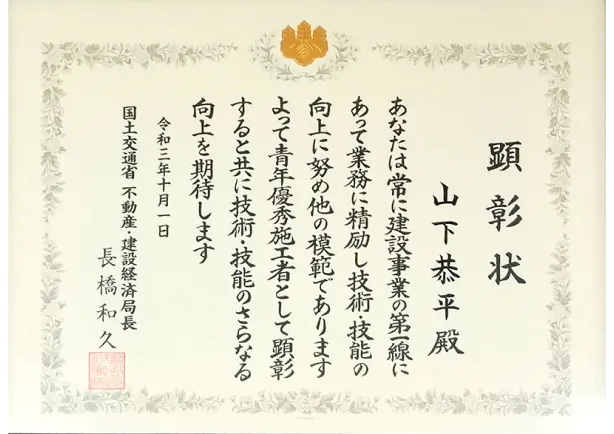 顕彰状
山下恭平殿
あなたは常に建設事業の第一線に
あって業務に精励し技術・技能の
向上に努め他の模範であります
よって青年優秀施工者として顕彰
すると共に技術・技能のさらなる
向上を期待します
令和三年十月一日
国土交通省 不動産・建設経済局長
長橋和久